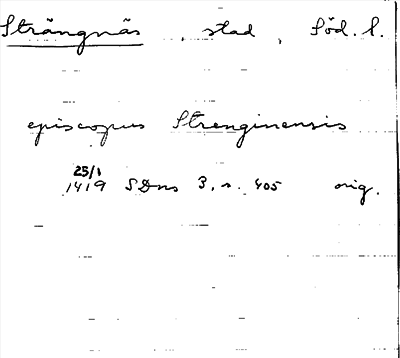 Strängnäs, stad, Söd. l.
episcopus Strenginensis
25/1
1419 SDns 3, s. 405 orig.